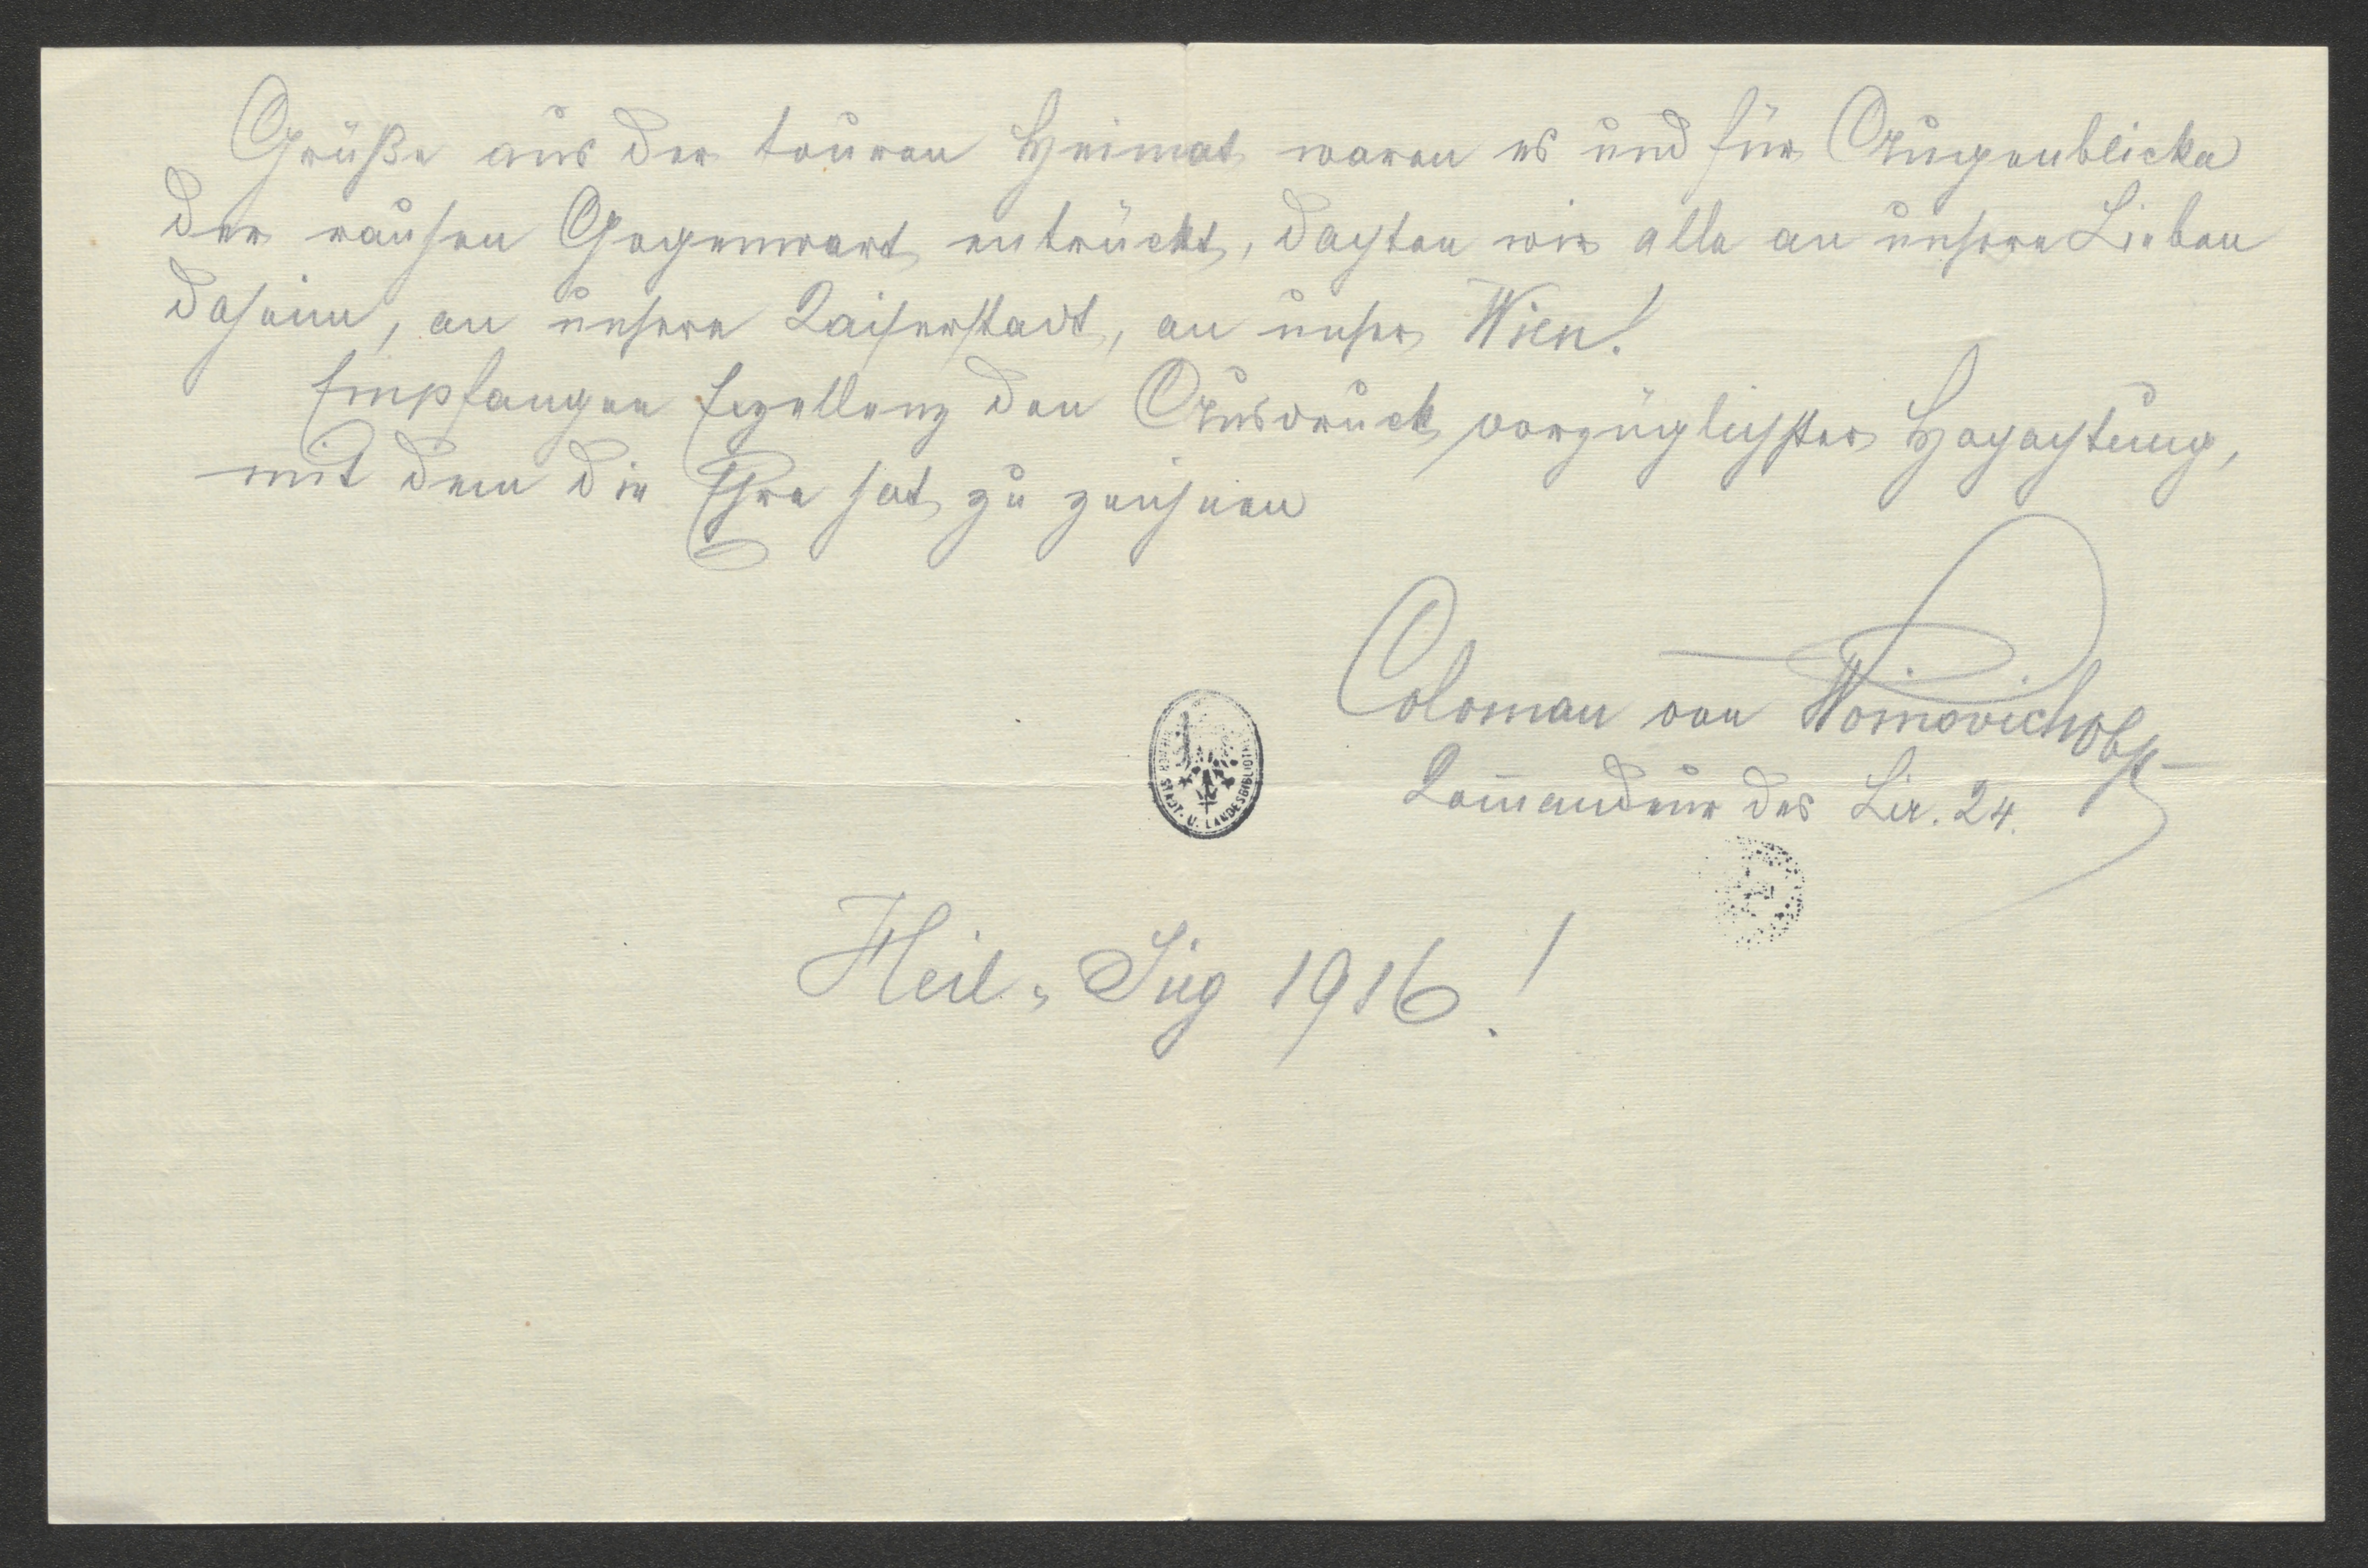 Grüße aus der teuren Heimat waren es und für Augenblicke
der rauhen Gegenwart entrückt, dachten wir alle an unsere Lieben
daheim, an unsere Kaiserstadt, an unser Wien!
Empfangen Exzellenz den Ausdruck vorzüglichster Hochachtung,
mit dem die Ehre hat zu zeichnen
Coloman von Woinovich Obst
Kom̅andeur des Lir. 24.
STADT- U. LANDESBIBLIOTHEK
Heil u. Sieg 1916!